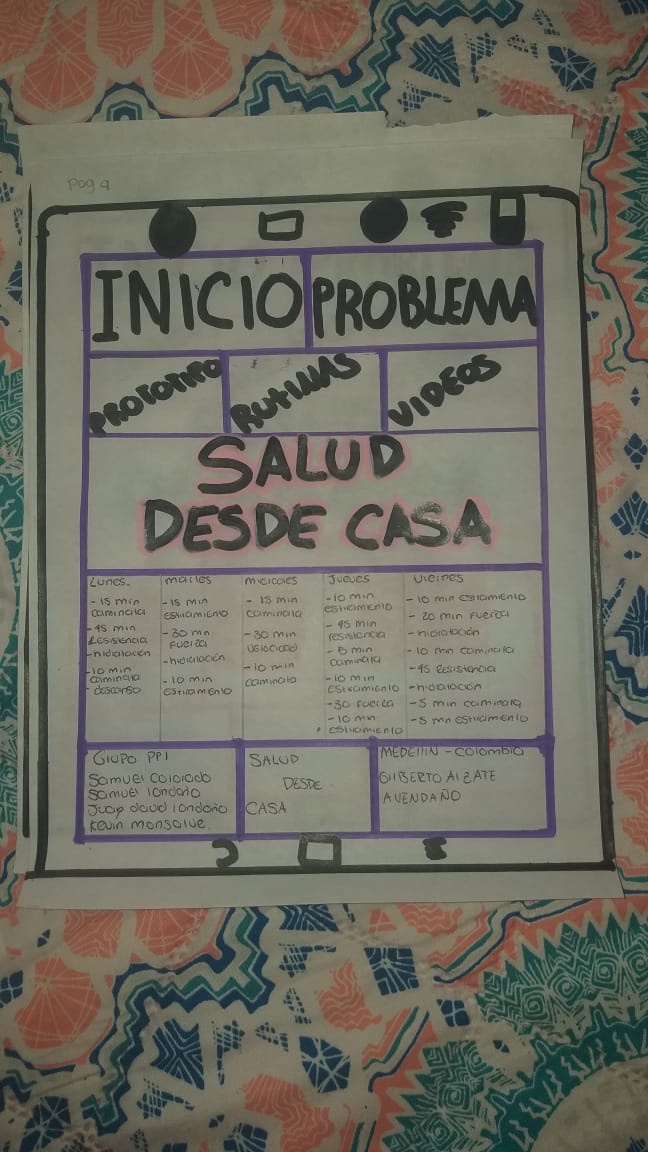 Pag 4
INICIO PROBLEMA
PROTOTIPO RUTINAS VIDEOS
SALUD
DESDE CASA
Lunes
- 15 min
caminata
- 45 min
Resistencia
- hidratación
- 10 min
caminata
- descanso
martes
- 15 min
estiramiento
- 30 mn
fuerza
- hidratación
- 10 min
estiramiento
miercoles
- 15 min
caminata
- 30 min
velocidad
- 10 min
caminata
Jueves
- 10 min
estiramiento
- 45 min
resistencia
- 5 min
caminata
- 10 min
estiramiento
- 30 fuerza
- 10 min
estiramiento
viernes
- 10 min estiramiento
- 20 min fuerza
- hidratación
- 10 min caminata
- 45 Resistencia
- hidratación
- 5 min caminata
- 5 mn estiramiento
Grupo PPI
Samuel Colorado
Samuel londoño
Juan david londoño
Kevin monsalve
SALUD
DESDE
CASA
MEDELLIN - Colombia
GILBERTO ALZATE
AVENDAÑO